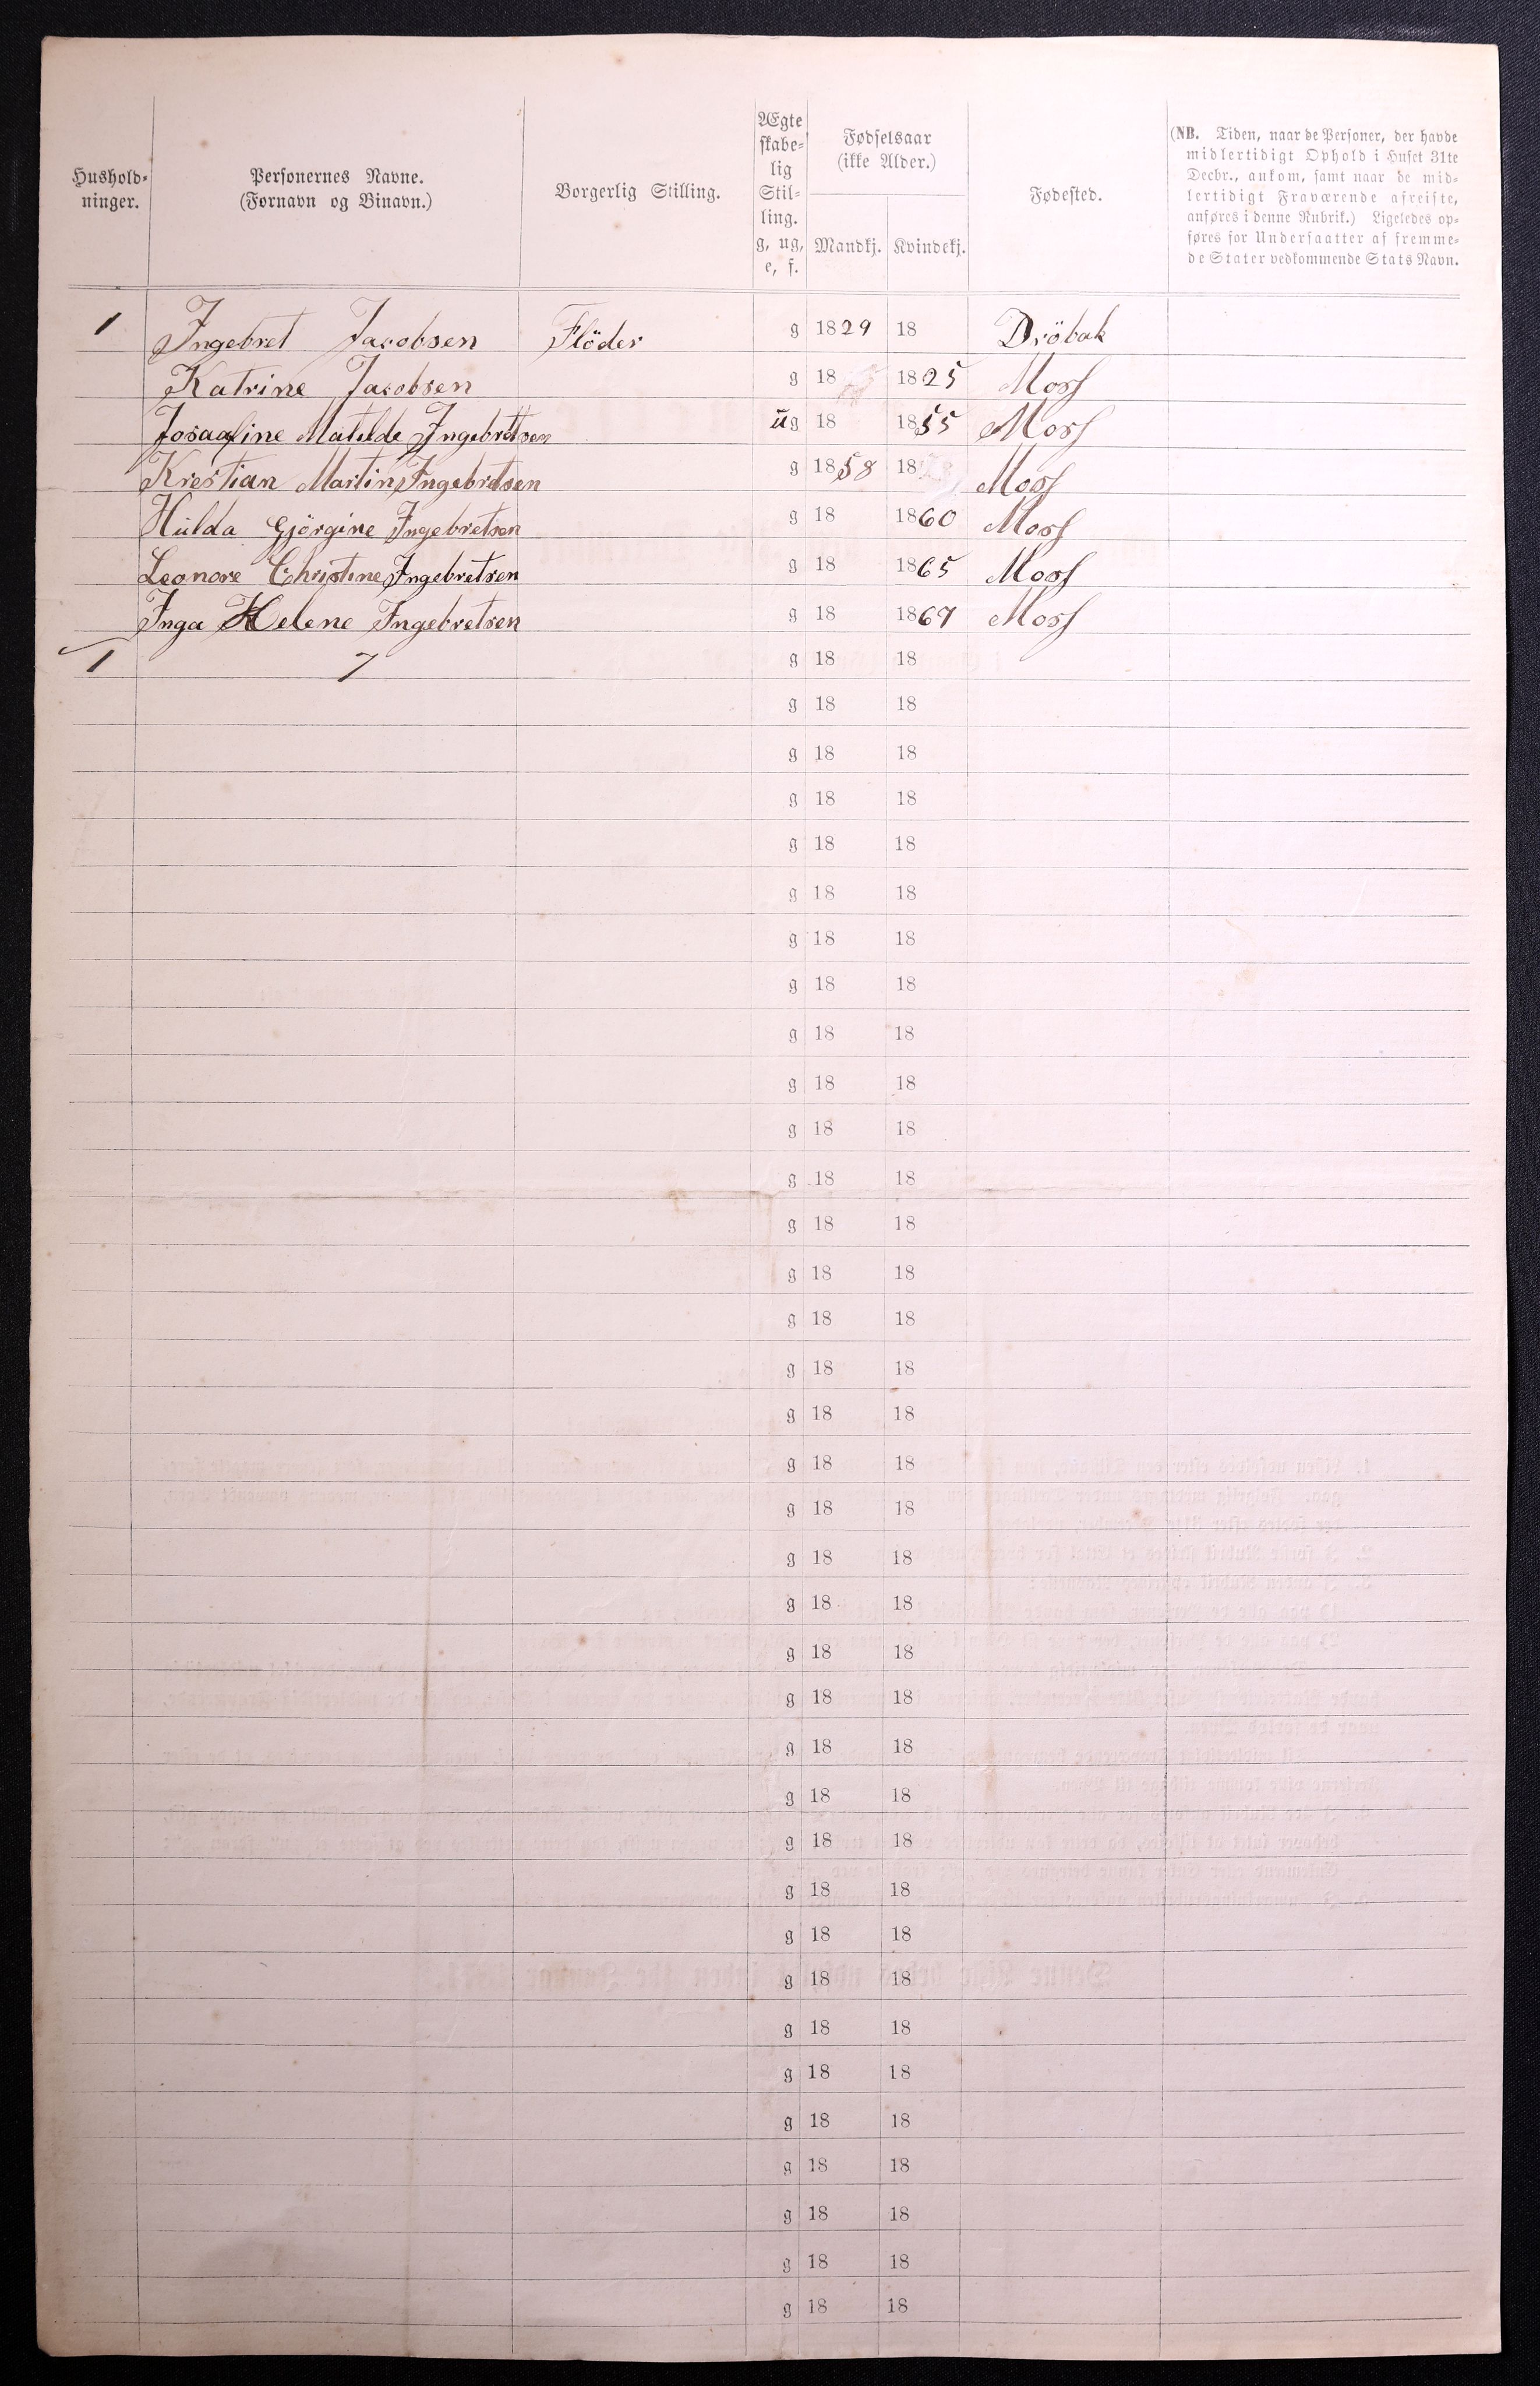 Hushold-
ninger.
Personernes Navne.
(Fornavn og Binavn.)
Borgerlig Stilling.
Ægte
skabe-
lig
Stil-
ling.
g, ug,
e, f.
Fødselsaar
(ikke Alder.)
Mandkj. Kvindekj.
Fødested.
(NB. Tiden, naar de Personer, der havde
midlertidigt Ophold i Huset 31te
Decbr., ankom, samt naar de mid-
lertidigt Fraværende afreiste,
anføres i denne Rubrik.) Ligeledes op-
føres for Undersaatter af fremme-
de Stater vedkommende Stats Navn.
1 Ingebret Jacobsen Flöder g 1829 18 Dröbak
Katrine Jacobsen g 18 1825 Moss
Josaafine Matilde Ingebretsen ug 18 1855 Moss
Krestian Martin Ingebretsen g 1858 18 Moss
Hulda Gjörgine Ingebretsen g 18 1860 Moss
Leonore Christine Ingebretsen g 18 1865 Moss
Inga Helene Ingebretsen g 18 1867 Moss
1 7 g 18 18
g 18 18
g 18 18
g 18 18
g 18 18
g 18 18
g 18 18
g 18 18
g 18 18
g 18 18
g 18 18
g 18 18
g 18 18
g 18 18
g 18 18
g 18 18
g 18 18
g 18 18
g 18 18
g 18 18
g 18 18
g 18 18
g 18 18
g 18 18
g 18 18
g 18 18
g 18 18
g 18 18
g 18 18
g 18 18
g 18 18
g 18 18
g 18 18
g 18 18
g 18 18
g 18 18